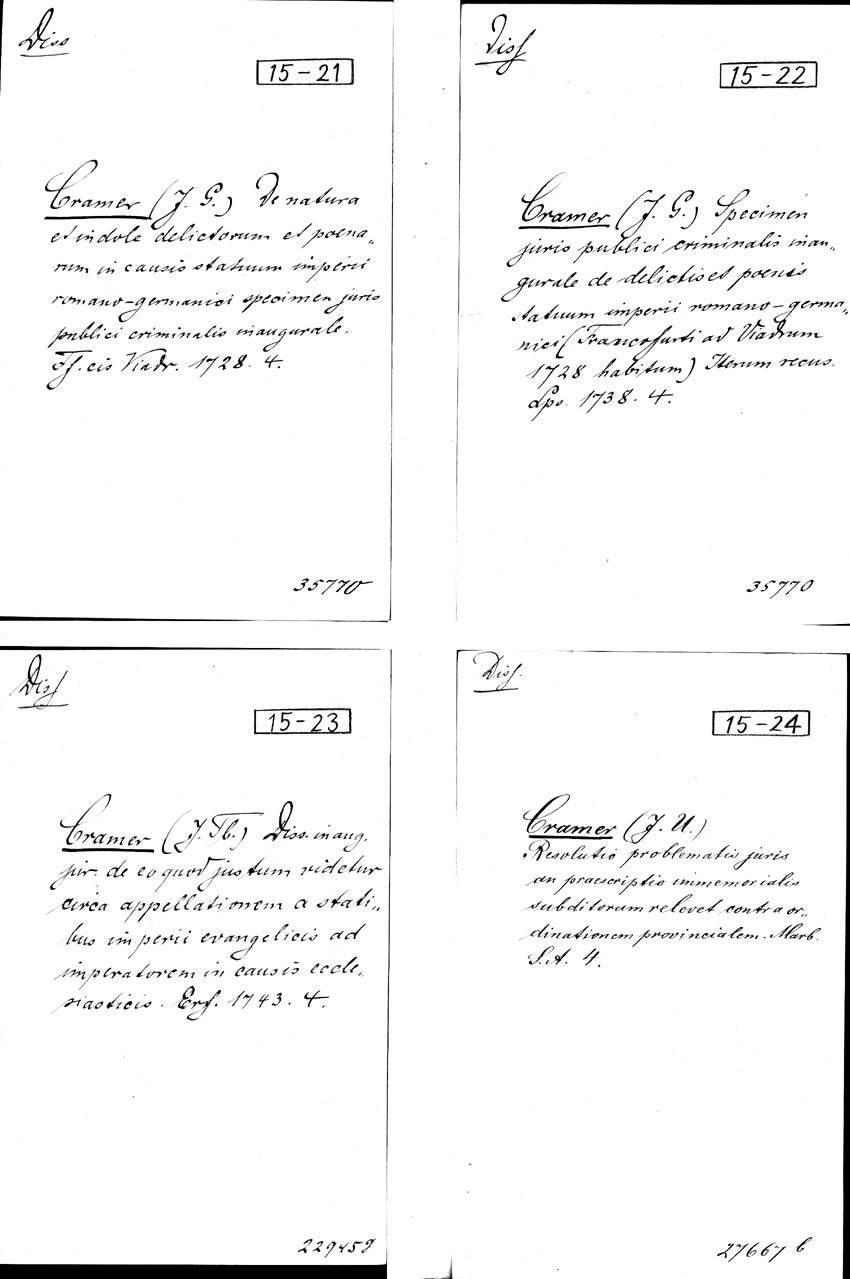 Diss
15-21
Cramer (J. G.) De natura
et indole delictorum et poena„
rum in causis statuum imperii
romano-germanici specimen juris
publici criminalis inaugurale.
Tf. cis Viadr. 1728. 4.
35770
Diss
15-22
Cramer (J. G.) Specimen
juris publici criminalis inau„
gurale de delictis et poenis
statuum imperii romano-germa„
nici (Francofurti ad Viadrum
1728 habitum) Iterum recus.
Lps. 1738. 4.
35770
Diss
15-23
Cramer (J. Tb.) Diss. inaug.
jur. de eo quod justum videtur
circa appellationem a stati„
bus imperii evangelicis ad
imperatorem in causis eccle„
siasticis. Erf. 1743. 4.
22945
Diss.
15-24
Cramer (J. U.)
Resolutio problematis juris
an praescriptio immemorialis
subditorum relevet contra or„
dinationem provincialem. Marb.
S. A. 4.
27667 b